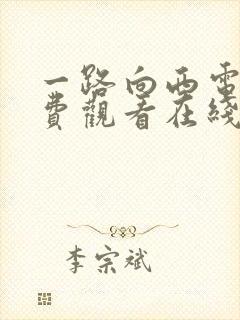 一路向西電
費觀看在綫
李宗斌